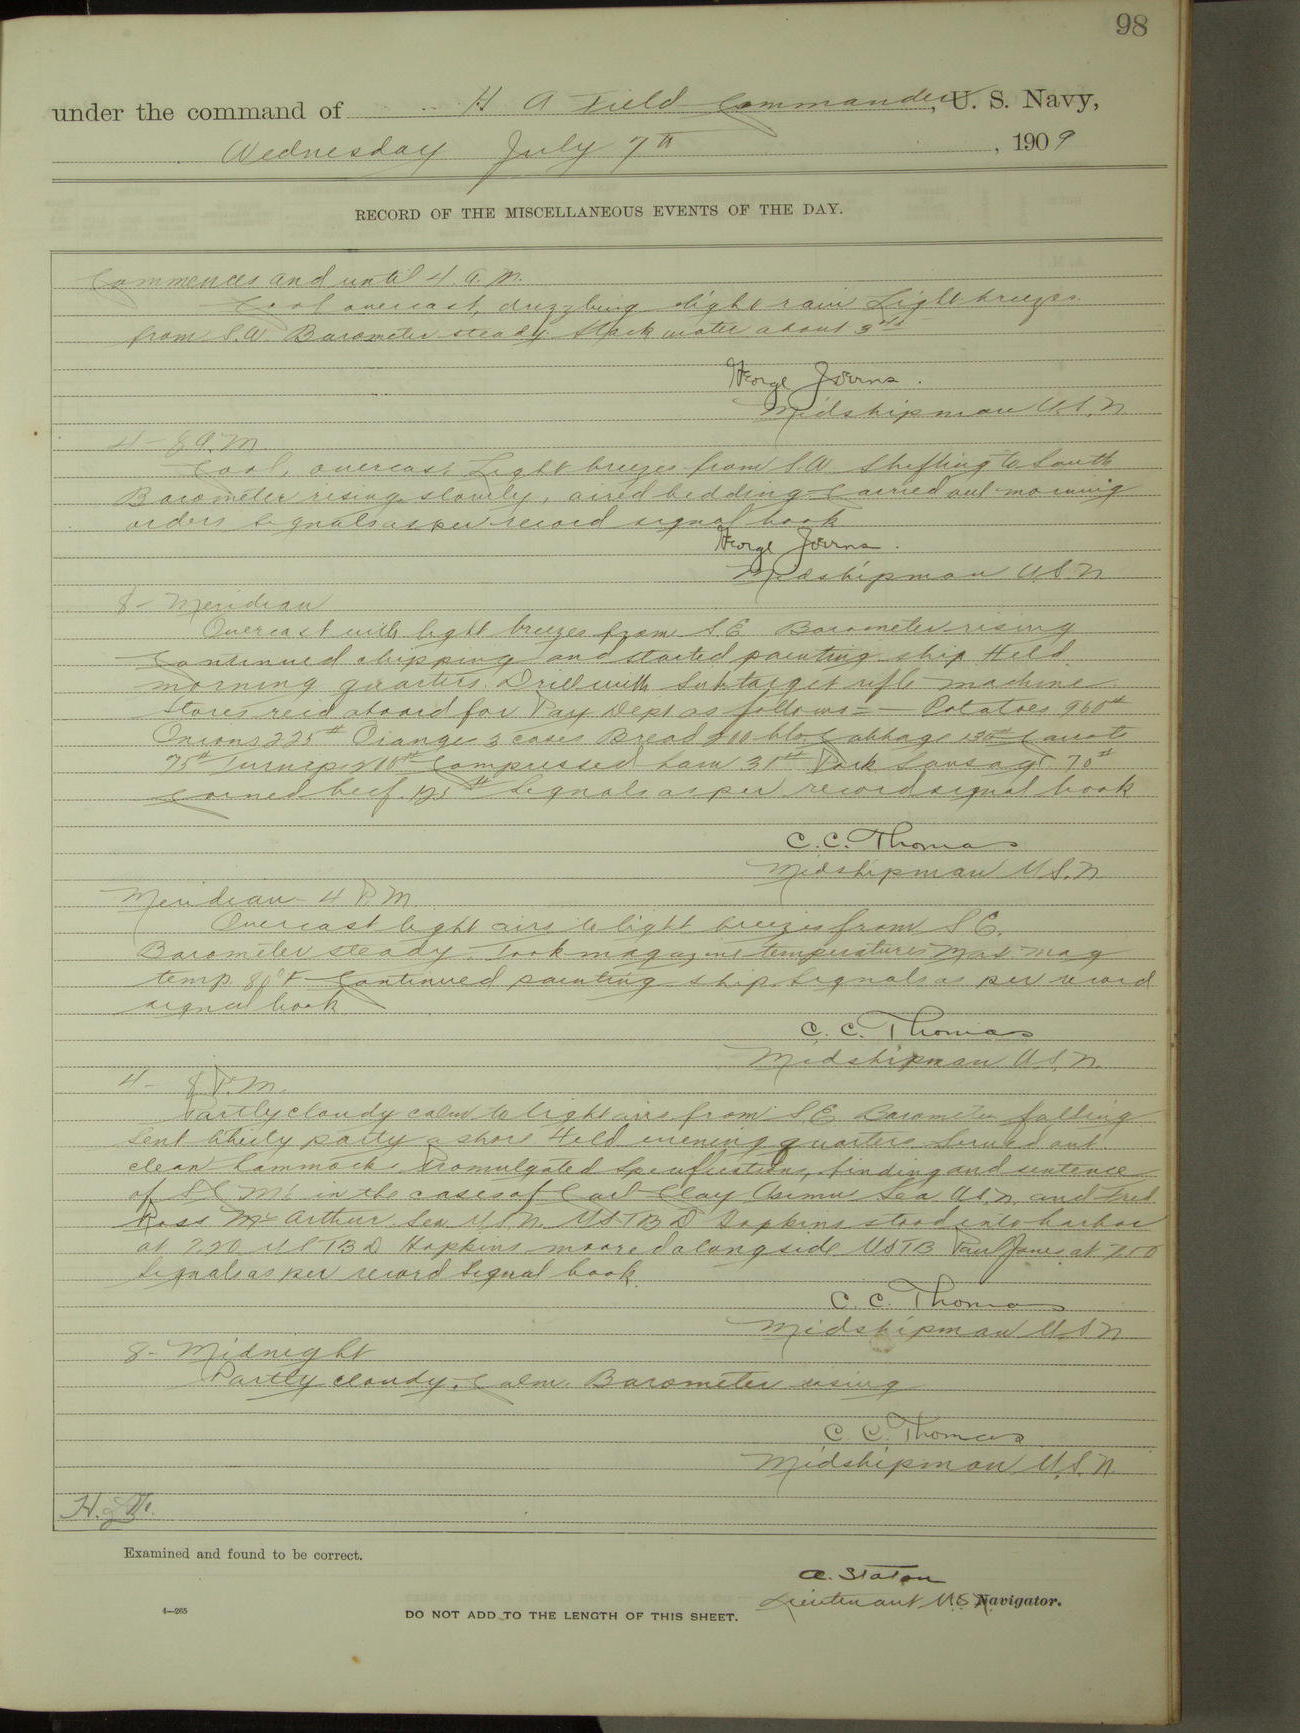 98
under the command of H A Field Commander, U. S. Navy,
Wednesday July 7th, 1909
RECORD OF THE MISCELLANEOUS EVENTS OF THE DAY.
Commences and until 4 A. M.
Cool overcast, drizzling slight rain Light breezes
from S.W. Barometer steady. Slack water about
George Joerns.
Midshipman U.S.N.
4 - 8 A.M.
Cool, overcast Light breezes from S.W. Shifting to South
Barometer rising slowly, aired bedding Carried out morning
orders Signals as per record signal book
George Joerns.
Midshipman U.S.N
8 - Meridian
Overcast with light breezes from S.E Barometer rising
Continued chipping and started painting ship Held
morning quarters. Drill with Subtarget rifle machine
Stores recd aboard for Pay Dept as follows = Potatoes 960#
Onions 225# Oranges 3 cases Bread 210 lbs. Cabbage 130# Carrots
75# Turnips 210# Compressed ham 31# Pork Sausage 70#
Corned beef 125# Signals as per record signal book
C. C. Thomas
Midshipman U.S.N.
Meridian - 4 P.M.
Overcast light airs to light breezes from S E.
Barometer steady. Took magazine temperatures Max mag
temp. 80°F Continued painting ship. Signals as per record
signal book
C. C. Thomas
Midshipman U.S.N.
4 - 8 P.M.
Partly cloudy calm to light airs from S E Barometer falling
Sent liberty party ashore Held evening quarters Served out
clean hammocks. Promulgated specifications, finding and sentence
of in the cases of Carl Clay Sea U.S.N. and Fred
Ross McArthur Sea U.S.N. USTBD Hopkins stood into harbor
at 720 USTBD Hopkins moored alongside USTB Paul Jones at 750
Signals as per record Signal book.
C. C. Thomas
Midshipman U.S.N
8 - Midnight
Partly cloudy. Calm. Barometer rising
C. C. Thomas
Midshipman U.S.N.
Examined and found to be correct.
A. Staton
Lieutenant U.S.N. Navigator.
4—265
DO NOT ADD TO THE LENGTH OF THIS SHEET.